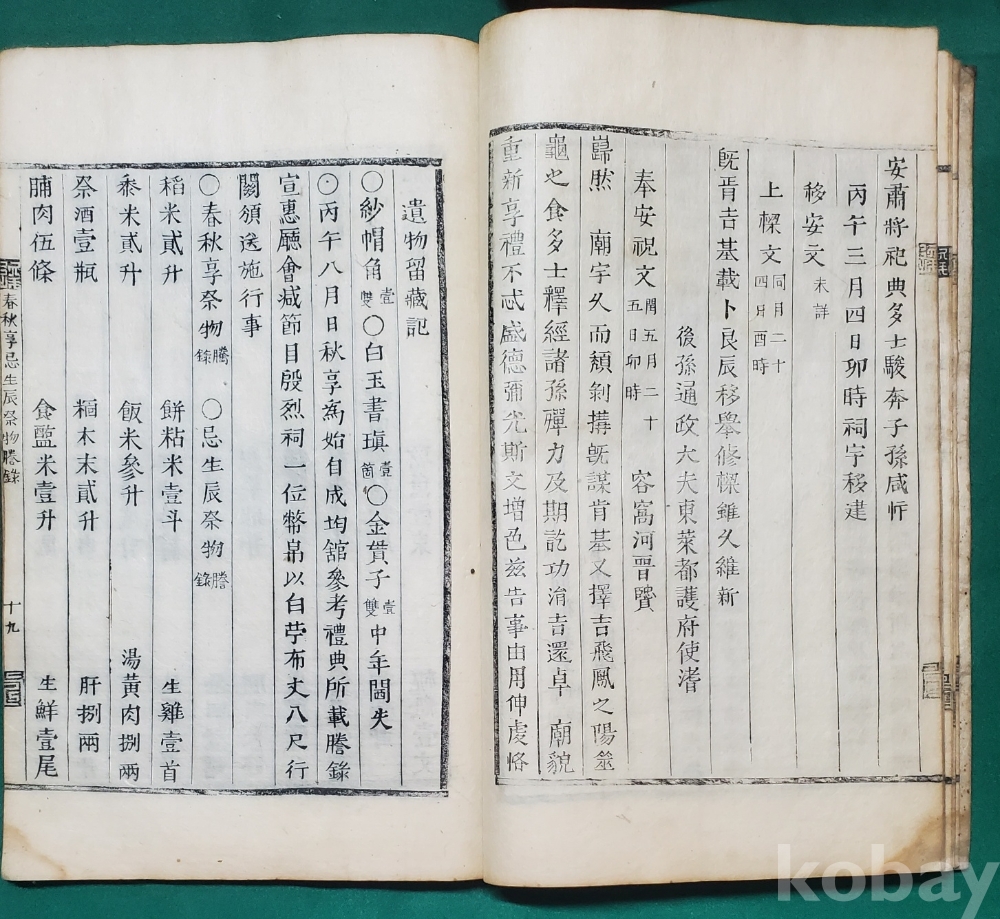 安肅將祀典多士駿奔子孫咸忻
丙午三月四日卯時祠宇移建
移安文 未詳
上樑文 同月二十四日酉時
旣胥吉基載卜良辰移擧修樑雖久維新
後孫通政大夫東萊都護府使濳
奉安祝文 閏五月二十五日卯時 容窩河晋賢
巋然 廟宇久而頹剝搆旣謀肯基又擇吉飛鳳之陽筮
龜之食多士釋經諸孫殫力及期訖功消吉還卓 廟貌
重新享禮不忒盛德彌光斯文增色玆告事由用伸虔恪
遺物留藏記
○紗帽角壹雙○白玉書瑱壹箇○金貫子壹雙中年閪失
○丙午八月日秋享爲始自成均舘參考禮典所載謄錄
宣惠廳會减節目殷烈祠一位幣帛以白苧布丈八尺行
關頒送施行事
○春秋享祭物謄錄 ○忌生辰祭物謄錄
稻米貳升 餠粘米壹斗 生雞壹首
黍米貳升 飯米參升 湯黃肉捌兩
祭酒壹瓶 糆木末貳升 肝捌兩
脯肉伍條 食醢米壹升 生鮮壹尾
春秋享忌生辰祭物謄錄 十九
kobay